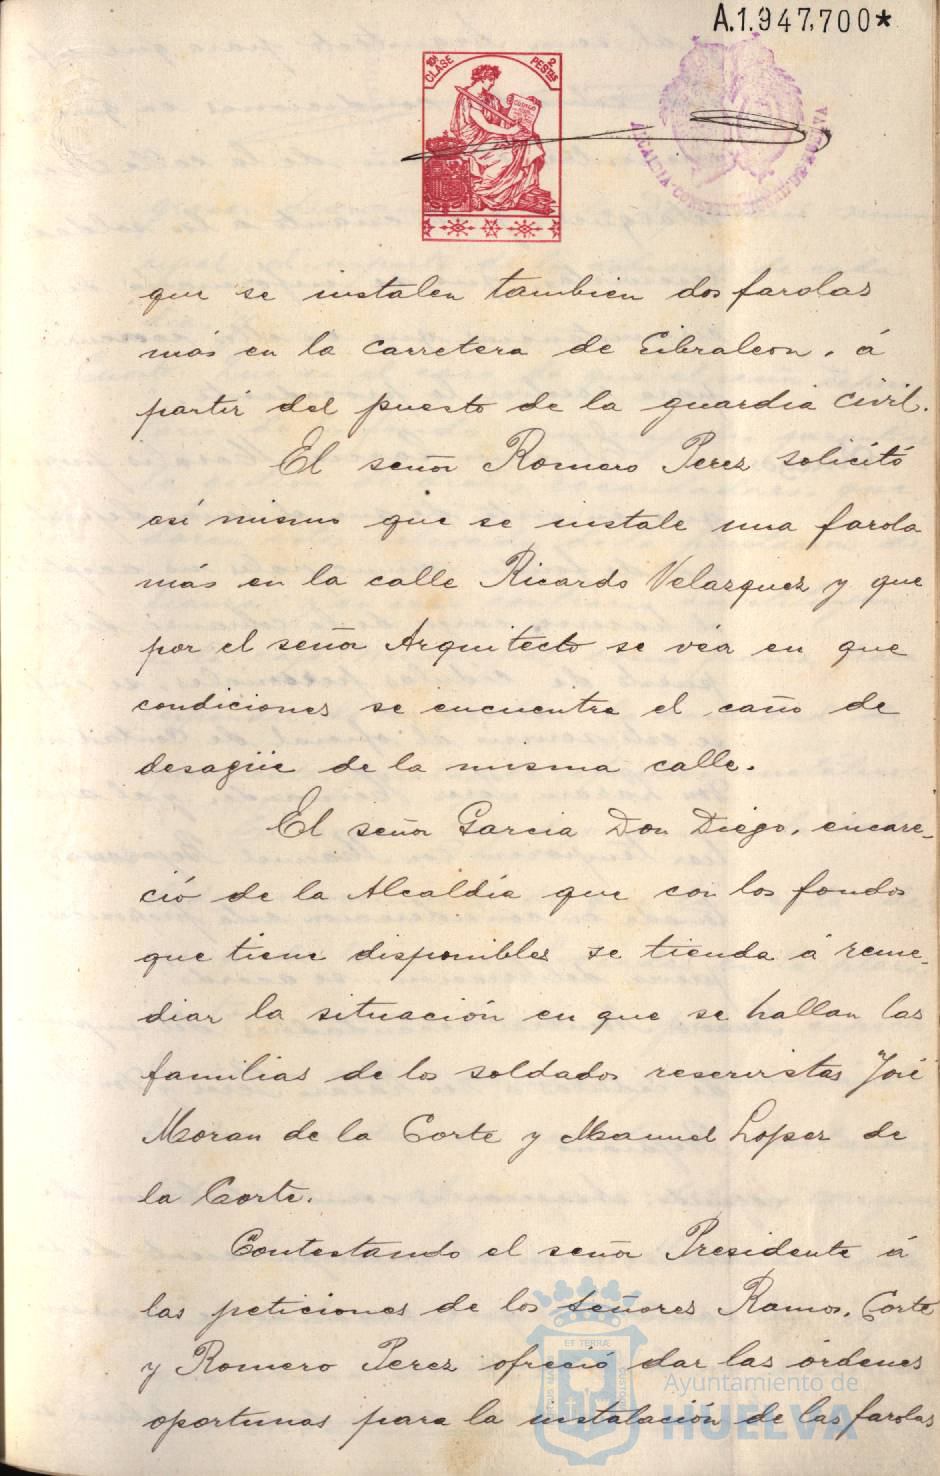 A.1.947,700*
10ª CLASE
2 PESTAS
ALCALDIA CONSTITUCIONAL DE HUELVA
que se instalen tambien dos farolas
más en la carretera de Gibraleon, á
partir del puesto de la guardia civil.
El señor Romero Perez solicitó
asi mismo que se instale una farola
más en la calle Ricardo Velazquez y que
por el señor Arquitecto se véa en que
condiciones se encuentra el caño de
desagüe de la misma calle.
El señor Garcia Don Diego, encare-
ció de la Alcaldía que con los fondos
que tiene disponibles se tienda á reme-
diar la situación en que se hallan las
familias de los soldados reservistas José
Moran de la Corte y Manuel Lopez de
la Corte.
Contestando el señor Presidente á
las peticiones de los señores Ramos, Corte
y Romero Perez ofreció dar las órdenes
oportunas para la instalación de las farolas
ET TERRÆ
Ayuntamiento de
HUELVA